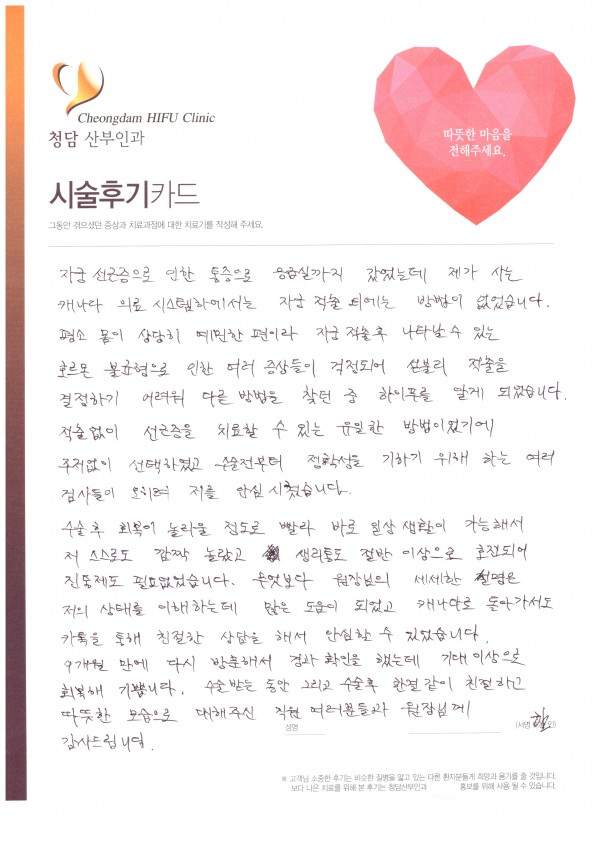 Cheongdam HIFU Clinic
청담 산부인과
따뜻한 마음을
전해주세요.
시술후기카드
그동안 겪으셨던 증상과 치료과정에 대한 치료기를 작성해 주세요.
자궁 선근증으로 인한 통증으로 응급실까지 갔었는데 제가 사는
캐나다 의료 시스템하에서는 자궁 적출 외에는 방법이 없었습니다.
평소 몸이 상당히 예민한 편이라 자궁 적출후 나타날 수 있는
호르몬 불균형으로 인한 여러 증상들이 걱정되어 섣불리 적출을
결정하기 어려워 다른 방법을 찾던 중 하이푸를 알게 되었습니다.
적출없이 선근증을 치료할 수 있는 유일한 방법이었기에
주저없이 선택하였고 수술전부터 정확성을 기하기 위해 하는 여러
검사들이 오히려 저를 안심 시켰습니다.
수술 후 회복이 놀라울 정도로 빨라 바로 일상 생활이 가능해서
저 스스로도 깜짝 놀랐고 생리통도 절반 이상으로 호전되어
진통제도 필요없었습니다. 무엇보다 원장님의 세세한 설명은
저의 상태를 이해하는데 많은 도움이 되었고 캐나다로 돌아가서도
카톡을 통해 친절한 상담을 해서 안심할 수 있었습니다.
9개월 만에 다시 방문해서 경과 확인을 했는데 기대 이상으로
회복해 기쁩니다. 수술 받는 동안 그리고 수술후 한결 같이 친절하고
따뜻한 모습으로 대해주신 직원 여러분들과 원장님께
감사드립니다.
성명 (서명 인)
※ 고객님 소중한 후기는 비슷한 질병을 앓고 있는 다른 환자분들게 희망과 용기를 줄 것입니다.
보다 나은 치료를 위해 본 후기는 청담산부인과 홍보를 위해 사용 될 수 있습니다.